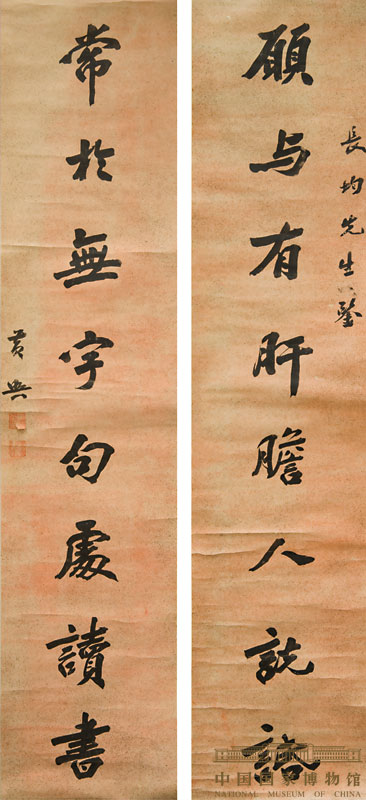 長均先生鑒
願与有肝膽人說話
常於無字句處讀書
黃興
中国国家博物馆
NATIONAL MUSEUM OF CHINA